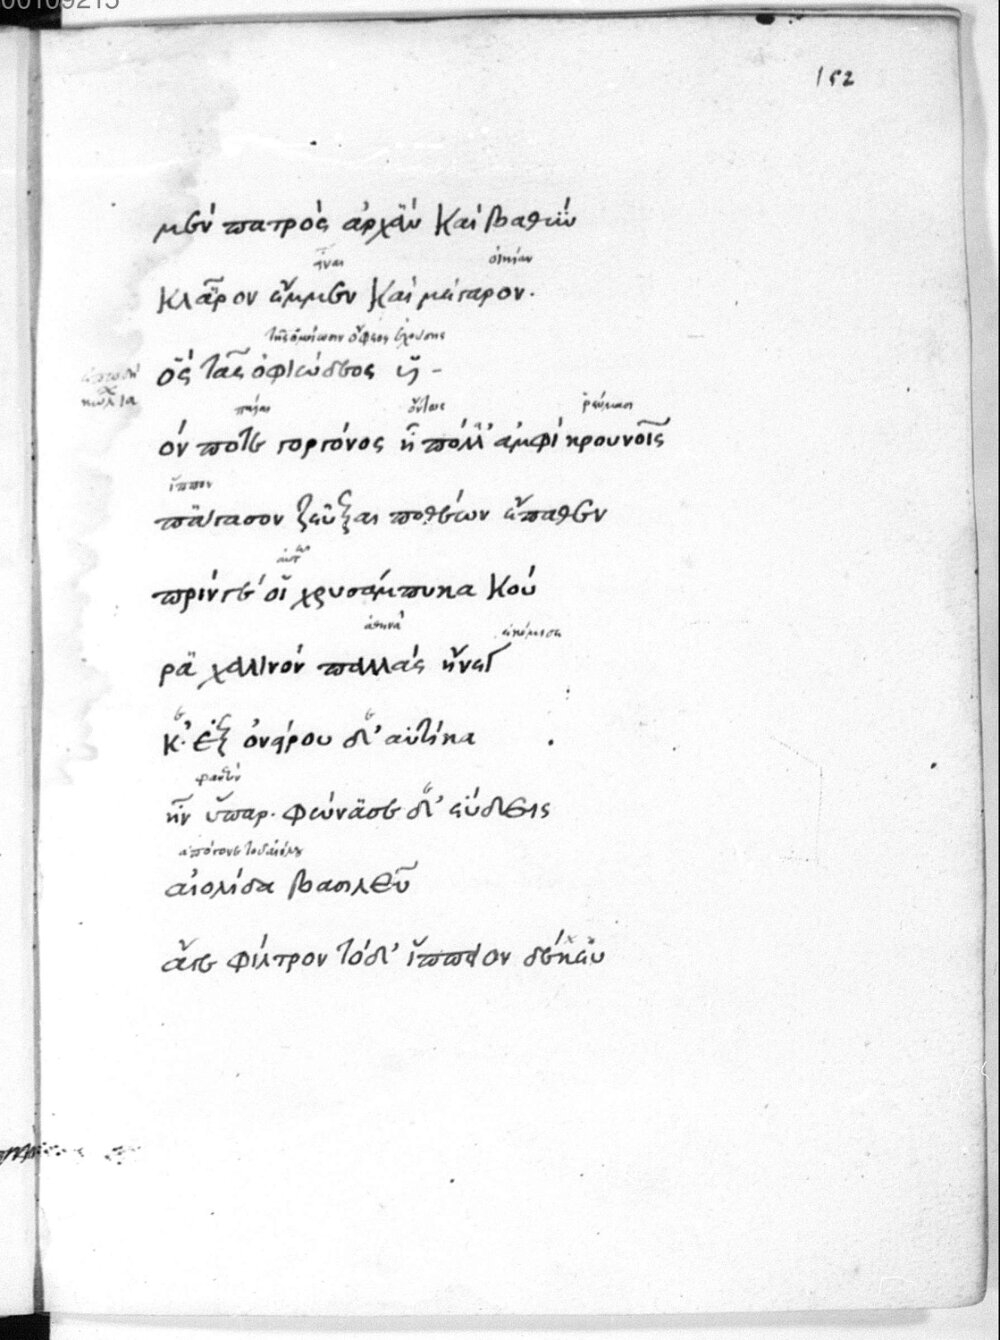 00109215
152
μὲν πατρὸς ἀρχὰν καὶ βαθὺν
εἶναι οἰκίαν
κλᾶρον ἔμμεν καὶ μέγαρον.
ὃς τᾶς ὀφιώδεος υἱ-
πηγαῖς ὄντως ῥεύμασι
όν ποτε γοργόνος ἦ πόλλ' ἀμφὶ κρουνοῖς
ἵππον
πάγασον ζεῦξαι ποθέων ἔπαθεν
αὐτῷ
πρίν γέ οἱ χρυσάμπυκα κού
ἀθηνᾶ ἐκόμισε
ρα χαλινὸν παλλὰς ἤνεγ
κ'. ἐξ ὀνείρου δ' αὐτίκα
ἦν ὕπαρ. φώνασε δ' εὕδεις
αἰολίδα βασιλεῦ
ἄγε φίλτρον τόδ' ἵππειον δέκευ